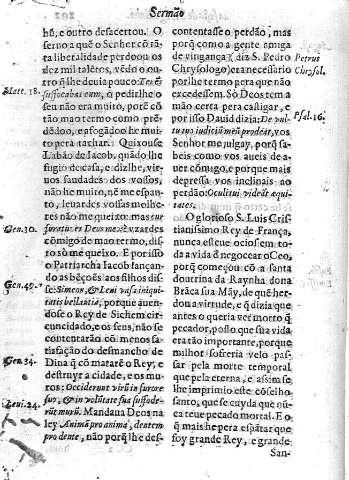 Sermão
hũ, e outro desacertou. O
seruo a quẽ o Senhor cõ tã
ta liberalidade perdoou os
dez mil talẽtos, vẽdo o ou-
tro q̃ lhe deuia pouco: Tenẽs
Matt. 18. suffocabat eum, ò pedirlhe o
seu não era muito, porẽ cõ
mão de tanto rigor como
prẽdẽdo, e afogãdo he mui
to pera tachar. Quixouse
Labão de Iacob, quãdo lhe
fugio de casa, e dizlhe, vir-
vos saudades dos vossos,
não he muito, nẽ me espan
to, leuardes vossas molhe-
res não me queixo: mas cur
Gen. 30. furatus es Deos meos? vzardes
cõmigo de mao termo, dis-
to só me queixo. E por isso
o Patriarcha Iacob lançan-
do as bẽções aos filhos dis
Gen. 49. se: Simeon, & Leui vasa iniqui
tatis bellantia, porque auen-
dose o Rey de Sichem cir-
cuncidado, e os seus, não se
contentarão cõ menos sa-
tisfação do desmancho de
Gen. 34. Dina q̃ cõ matarẽ o Rey, e
destruyr a cidade, e os mu
ros: Occiderunt virũ in furore
suo, & in volũtate sua suffode-
Leui. 24. runt murũ. Mandana Deos na
ley Animã pro anima, dentem
pro dente, não porq̃ lhe des-
contentasse o perdão, mas
porq̃ como a gente amiga
de vingança (diz S. Pedro Petrus
Chrysologo) era necessario Chrysol.
porlhe ley pera que não
excedessem. Só Deos tem a
mão certa pera castigar, e
por isso Dauid dizia: De vul Psal. 16.
tu tuo iudiciũ meũ prodeat, vos
Senhor me julgay, porq̃ sa-
beis como vos aueis de a-
uer cõmigo, e porque mais
depressa vos inclinais ao
perdão: Oculi tui videãt æqui
tates.
O glorioso S. Luis Cris-
tianissimo Rey de França,
nunca esteue ocioso em to-
da a vida ẽ negocear o Ceo,
porq̃ começou cõ a santa
doutrina da Raynha dona
Brãca sua Mãy, de quẽ her-
dou a virtude, e q̃ dizia que
antes o queria ver morto q̃
peccador, posto que sua vida
era tão importante, porque
milhor sofreria velo pas-
sar pela morte temporal
que pela eterna, e assim se
lhe imprimio este cõselho
santo, que se cuyda que nũ-
ca teue peccado mortal. E o
q̃ mais he pera espãtar que
foy grande Rey, e grande
San-